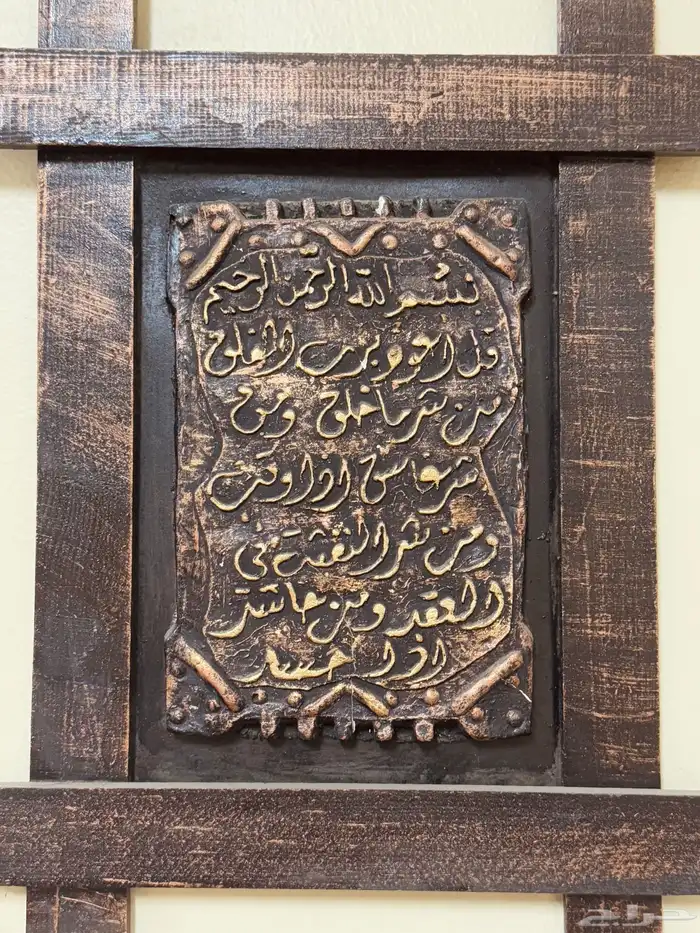 بسم الله الرحمن الرحيم
قل اعوذ برب الفلق
من شر ما خلق ومن
شر غاسق اذا وقب
ومن شر النفثت في
العقد ومن حاسد
اذا حسد
حراج